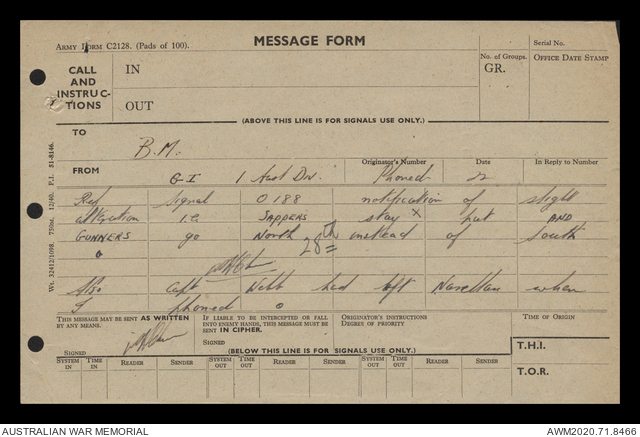 ARMY FORM C2128. (Pads of 100).
MESSAGE FORM
Serial No.
CALL AND INSTRUC- TIONS
IN
No. of Groups. GR.
OFFICE DATE STAMP
OUT
(ABOVE THIS LINE IS FOR SIGNALS USE ONLY.)
TO
B.M.
FROM
G I 1 Aust Div.
Originator's Number
Phoned
Date
22
In Reply to Number
Ref signal O 188 notification of slight
alteration i.e SAPPERS stay x put AND
GUNNERS go North 28th instead of South
Also Capt Webb had left Narellan when
I phoned
Wt. 32412/1098. 750M. 12/40. P.I. 51-8146.
THIS MESSAGE MAY BE SENT AS WRITTEN BY ANY MEANS.
SIGNED
IF LIABLE TO BE INTERCEPTED OR FALL INTO ENEMY HANDS, THIS MESSAGE MUST BE SENT IN CIPHER.
SIGNED
ORIGINATOR'S INSTRUCTIONS DEGREE OF PRIORITY
TIME OF ORIGIN
(BELOW THIS LINE IS FOR SIGNALS USE ONLY.)
T.H.I.
SYSTEM IN TIME IN READER SENDER SYSTEM OUT TIME OUT READER SENDER SYSTEM OUT TIME OUT READER SENDER
T.O.R.
AUSTRALIAN WAR MEMORIAL
AWM2020.71.8466